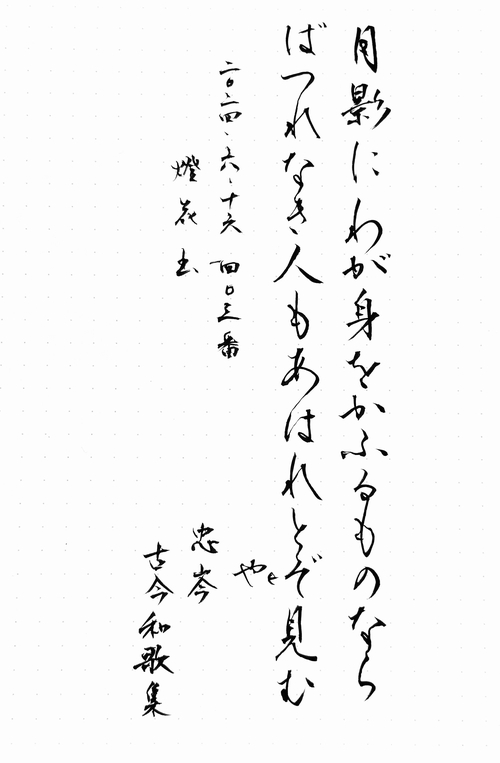 月影にわが身をかふるものなら
ばつれなき人もあはれとぞ見む
や
二〇二四、六、十六 四〇三番
燈花
忠岑
古今和歌集